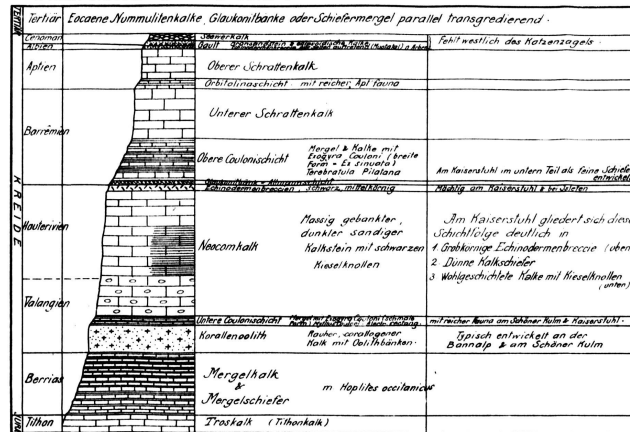 TERTIÄR
Tertiär Eocaene Nummulitenkalke, Glaukonitbänke oder Schiefermergel parallel transgredierend.
Cenoman Seewerkalk
Albien Gault
Fehlt westlich des Katzenzagels.
Aptien Oberer Schrattenkalk.
Orbitolinaschicht mit reicher Apt fauna
Barrêmien Unterer Schrattenkalk
Obere Coulonischicht Mergel & Kalke mit
Exogyra Couloni (breite
Form = Ex sinuata)
Terebratula Pilatana
Am Kaiserstuhl im untern Teil als feine Schiefe
entwickelt
KREIDE
Echinodermenbreccien, schwarz, mittelkörnig Mächtig am Kaiserstuhl & bei
Hauterivien Neocomkalk
Massig gebankter,
dunkler sandiger
Kalkstein mit schwarzen
Kieselknollen
Am Kaiserstuhl gliedert sich diese
Schichtfolge deutlich in
1. Grobkörnige Echinodermenbreccie (oben
2 Dünne Kalkschiefer
3 Wohlgeschichtete Kalke mit Kieselknollen
(unten)
Valangien
Untere Coulonischicht Mergel mit Exogyra Couloni (schmale
mit reicher Fauna am Schöner Kulm & Kaiserstuhl.
Korallenoolith Rauher, corallogener
Kalk mit Oolithbänken.
Typisch entwickelt an der
Bannalp & am Schöner Kulm
Berrias Mergelkalk
&
Mergelschiefer
m Hoplites occitanicus
JURA
Tithon Troskalk (Tithonkalk)